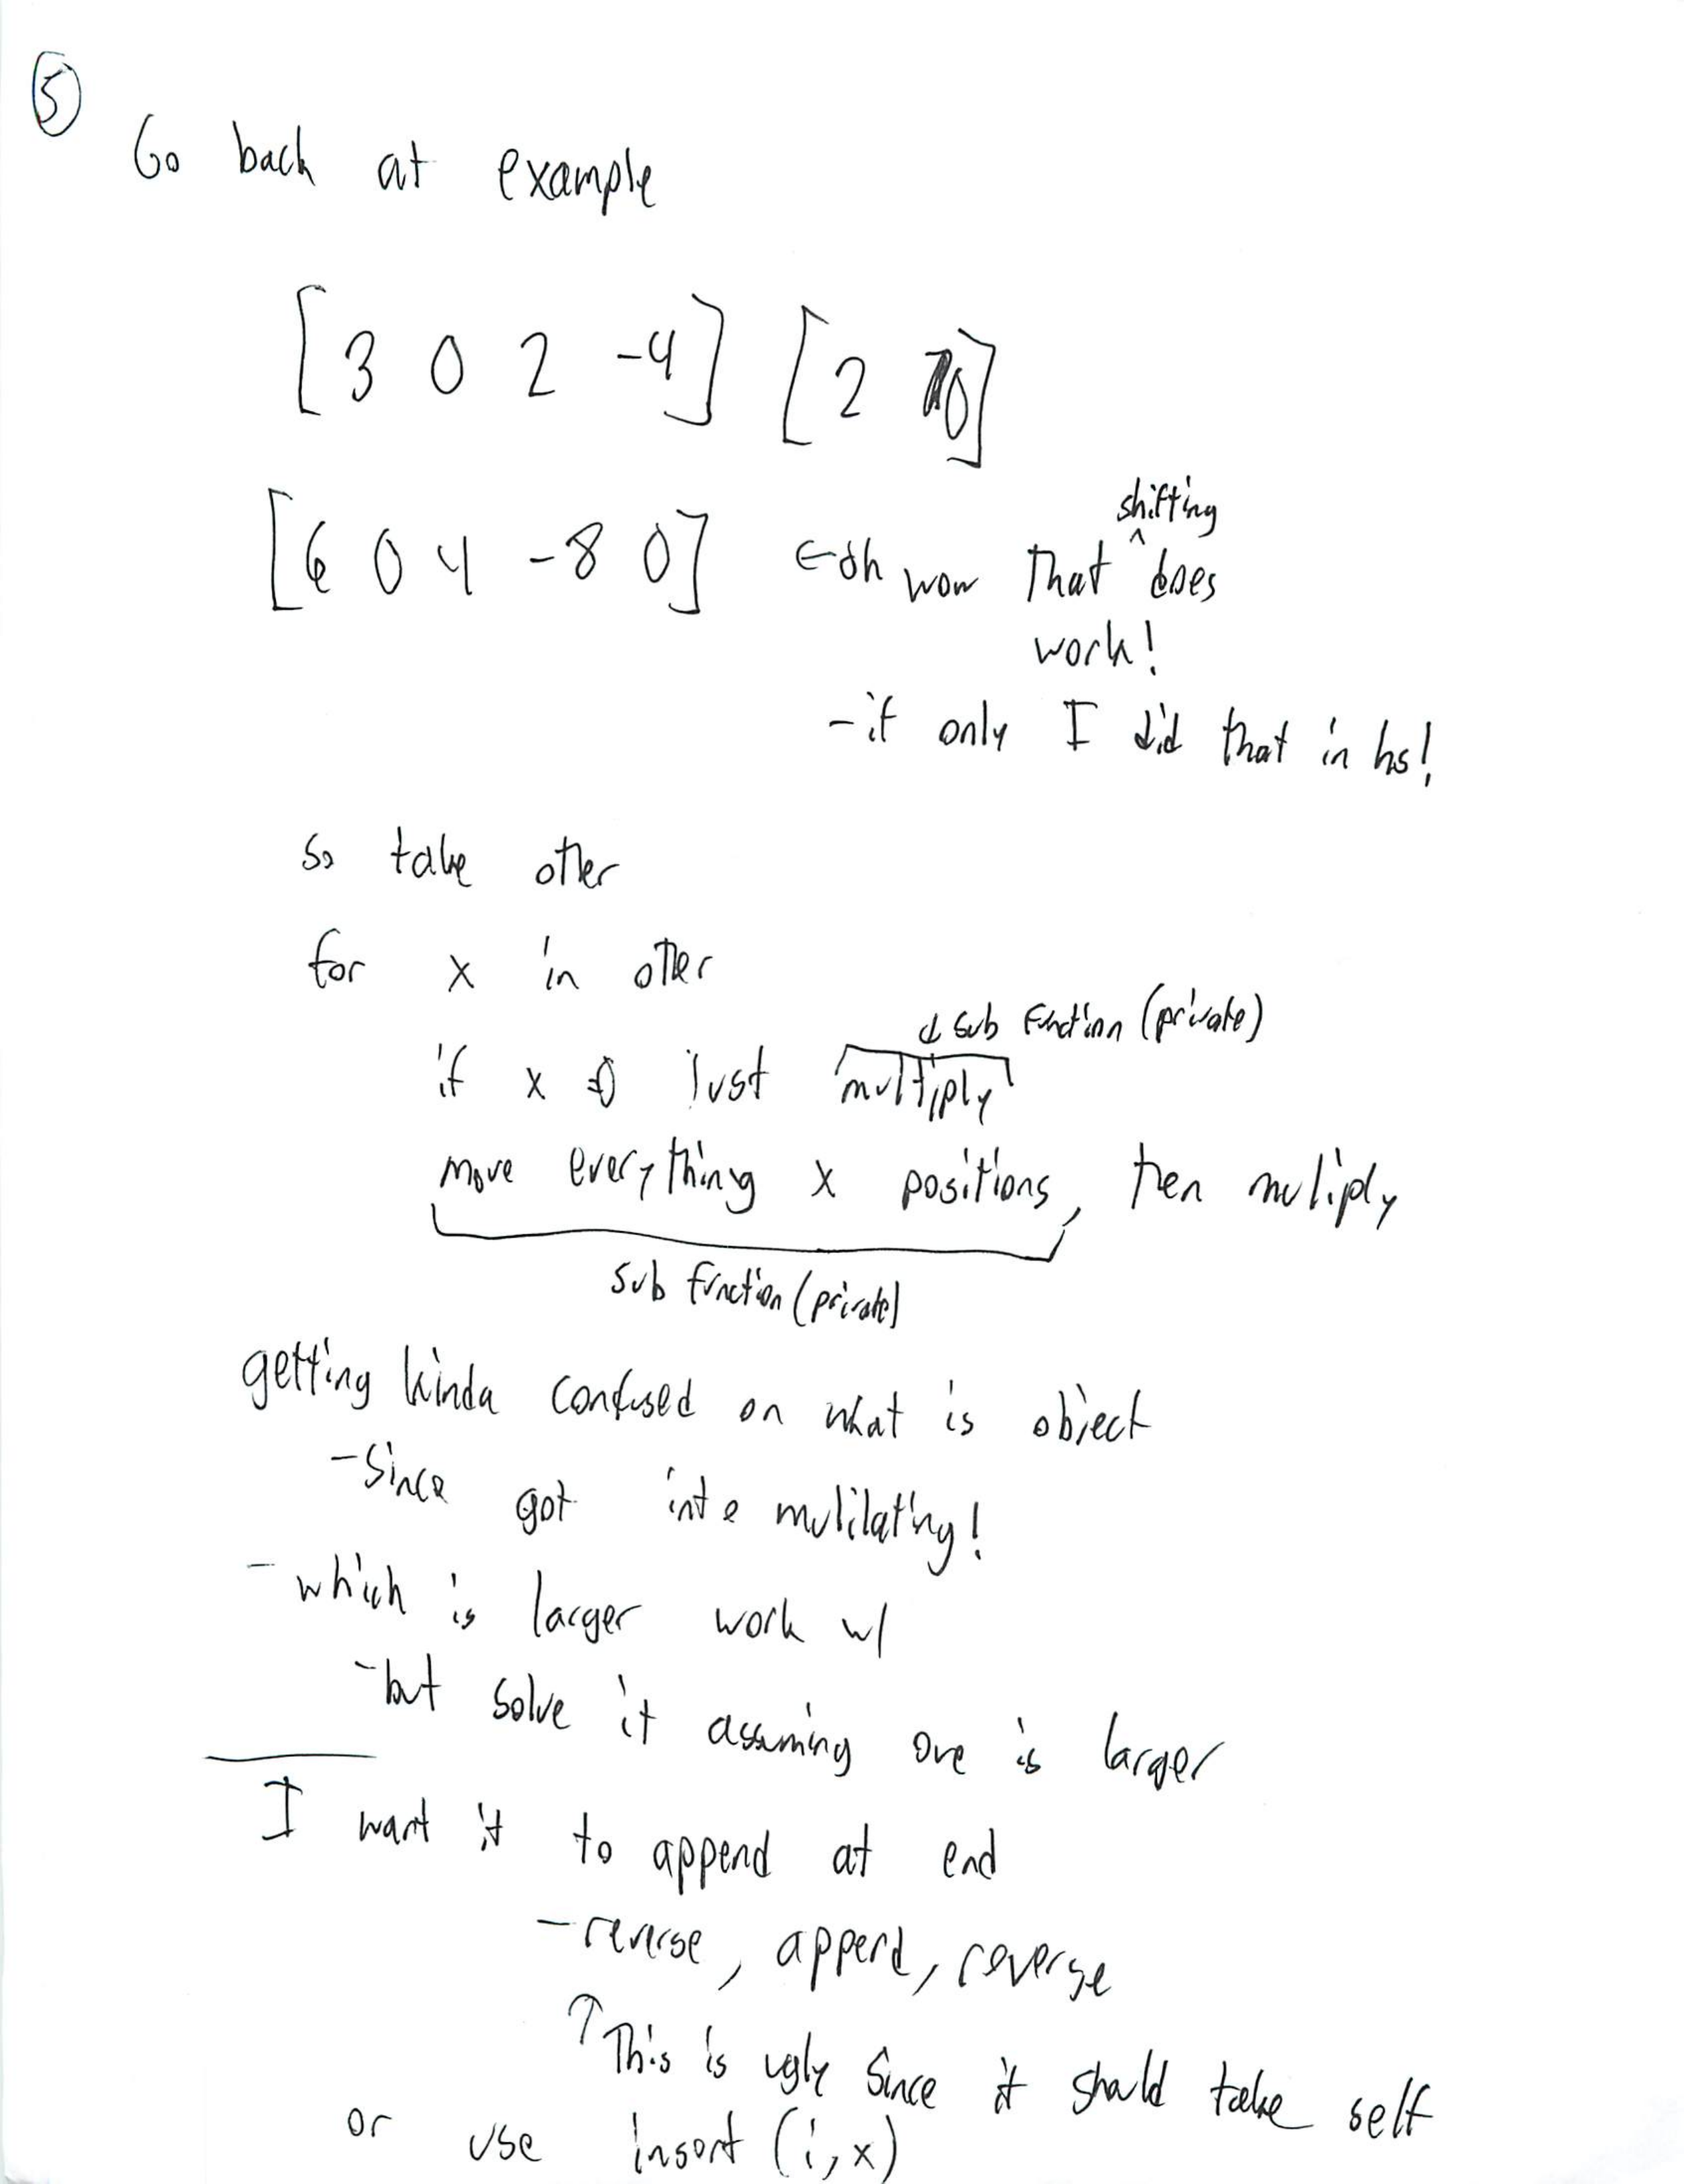 5
Go back at example
[3 0 2 -4] [2 0]
[6 0 4 -8 0] ← oh wow that ^shifting does
work!
- if only I did that in hs!
So take other
for x in other
↓ sub function (private)
if x =0 just multiply
move everything x positions, then muliply
sub function (private)
getting kinda confused on what is object
- Since got into mulilating!
- which is larger work w/
- but solve it assuming one is larger
I want it to append at end
- reverse, append, reverse
↑ This is ugly since it should take self
or use insort (i,x)